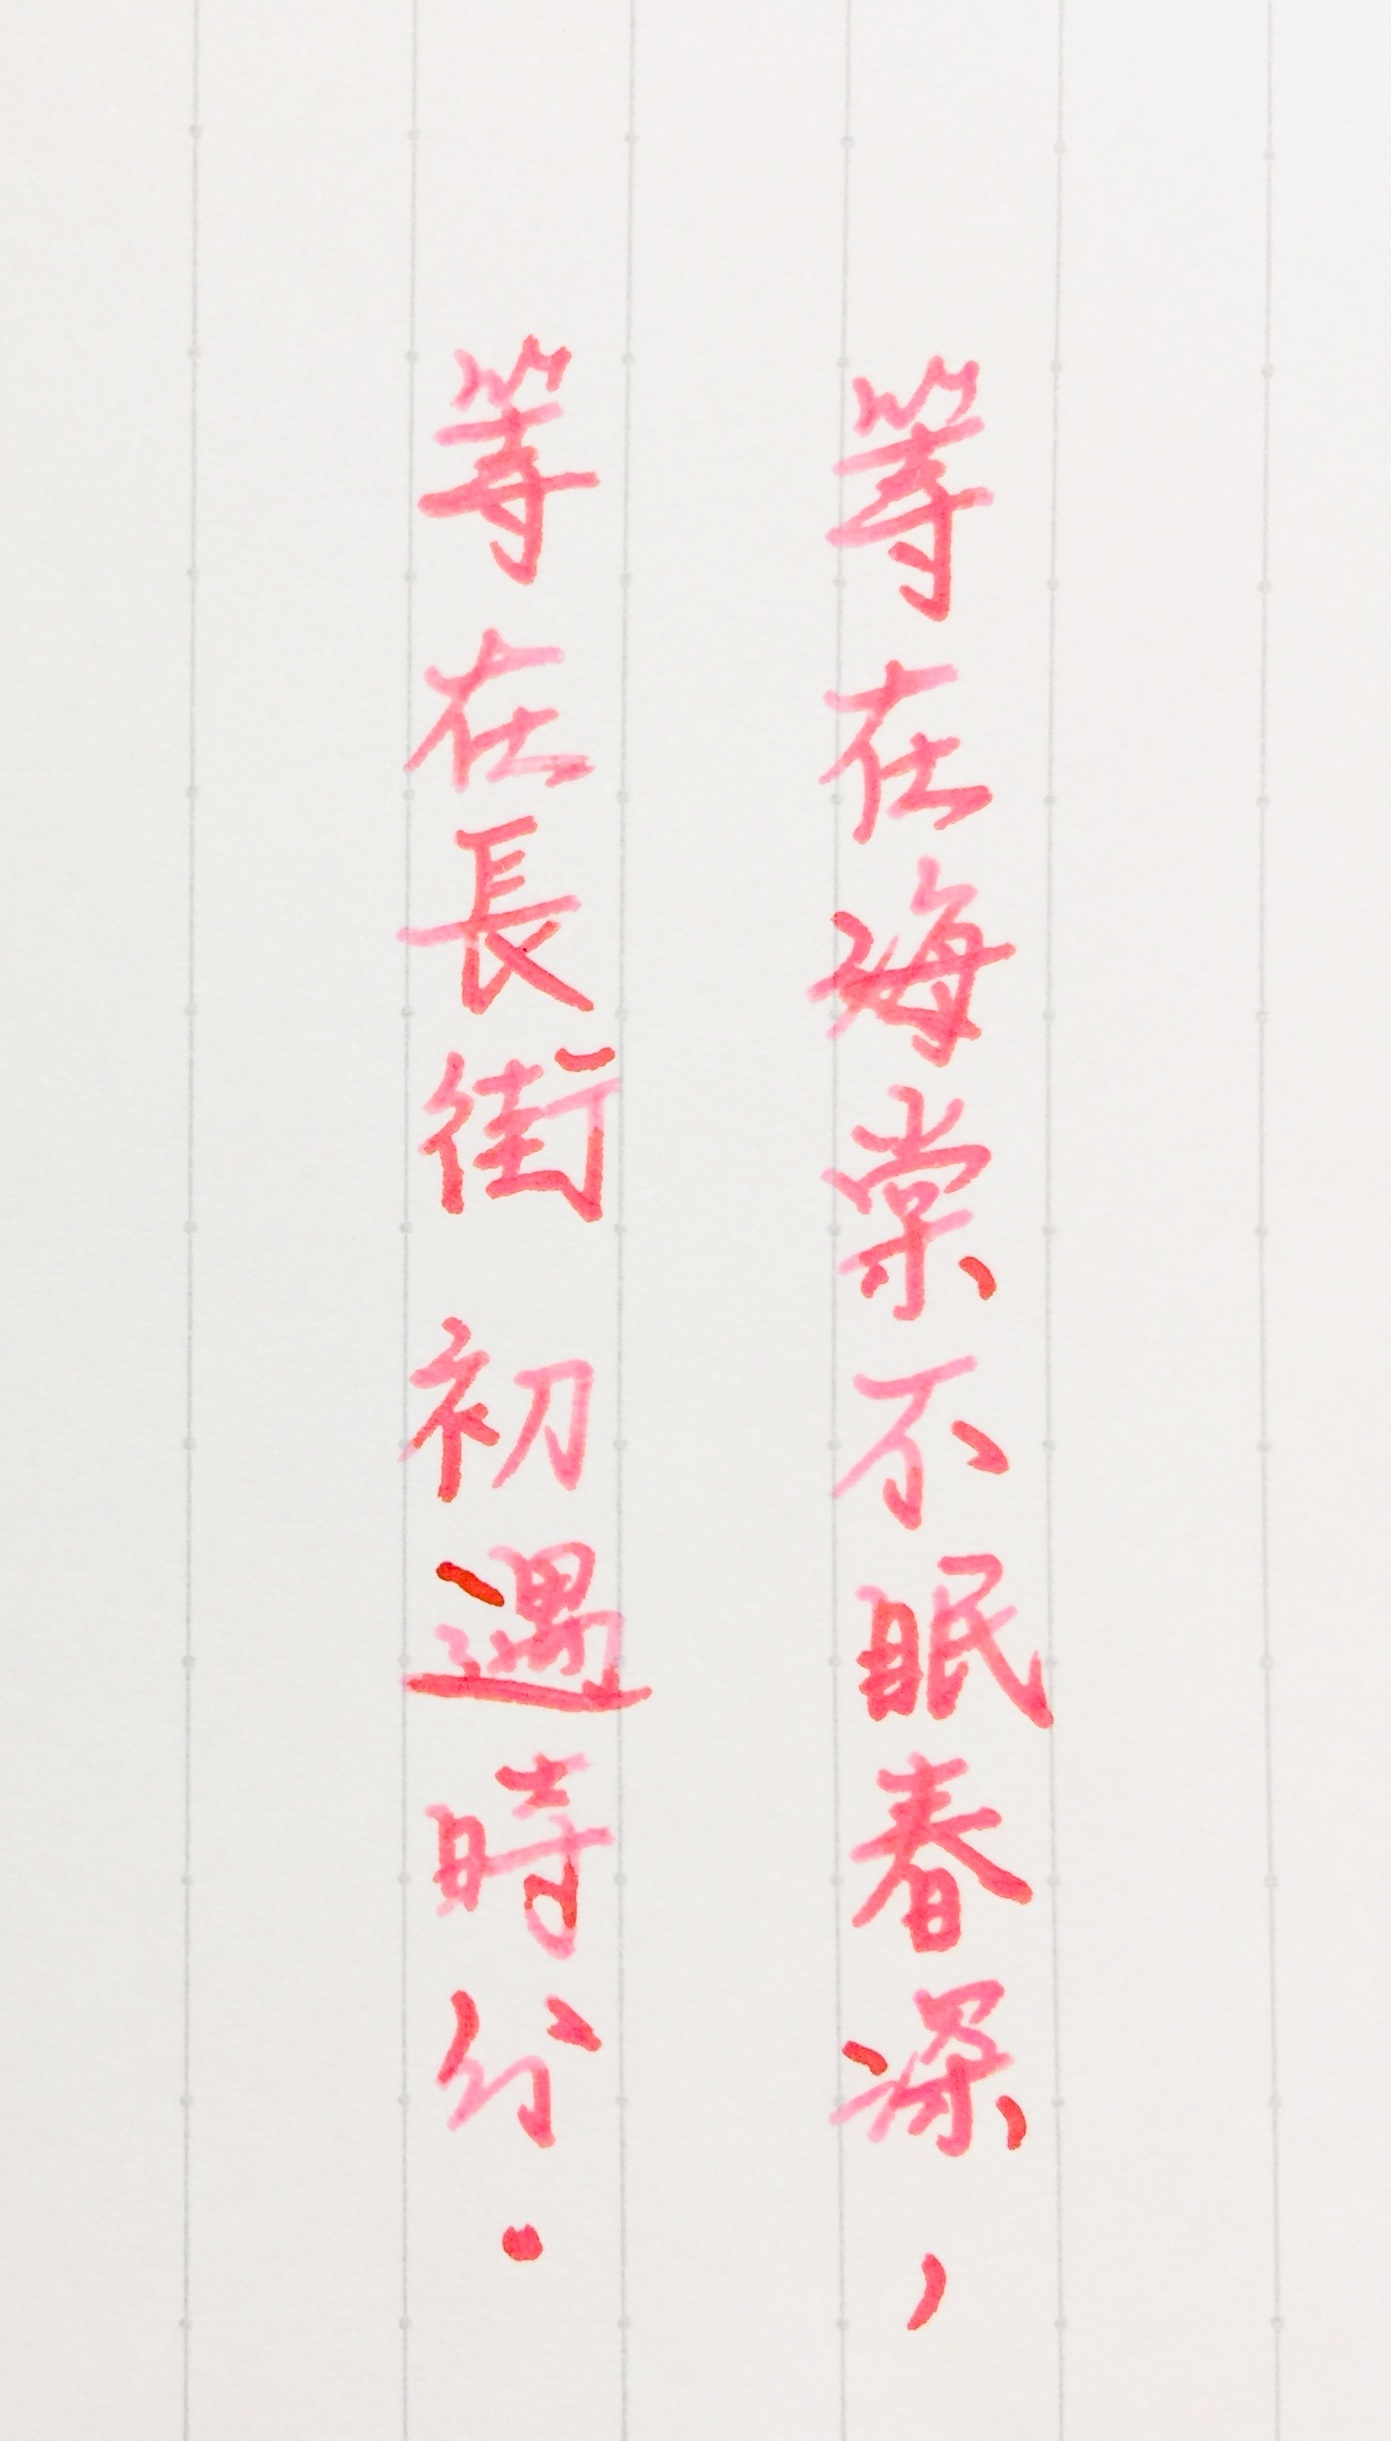 等在海棠不眠春深，
等在長街初遇時分.